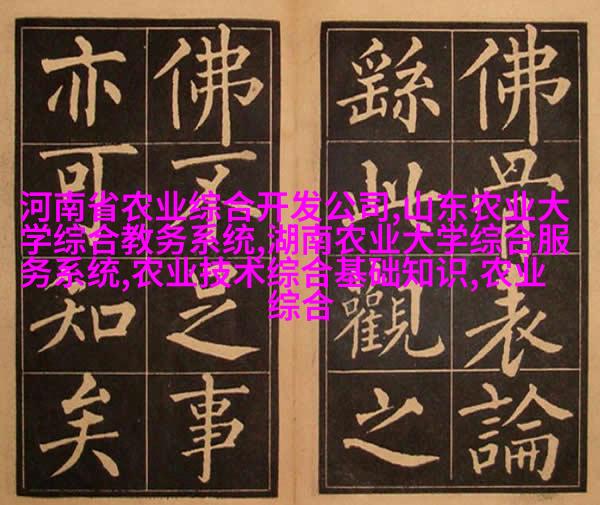 佛骨表論
繇此觀之
佛不足事
亦可知矣
河南省农业综合开发公司,山东农业大
学综合教务系统,湖南农业大学综合服
务系统,农业技术综合基础知识,农业
综合